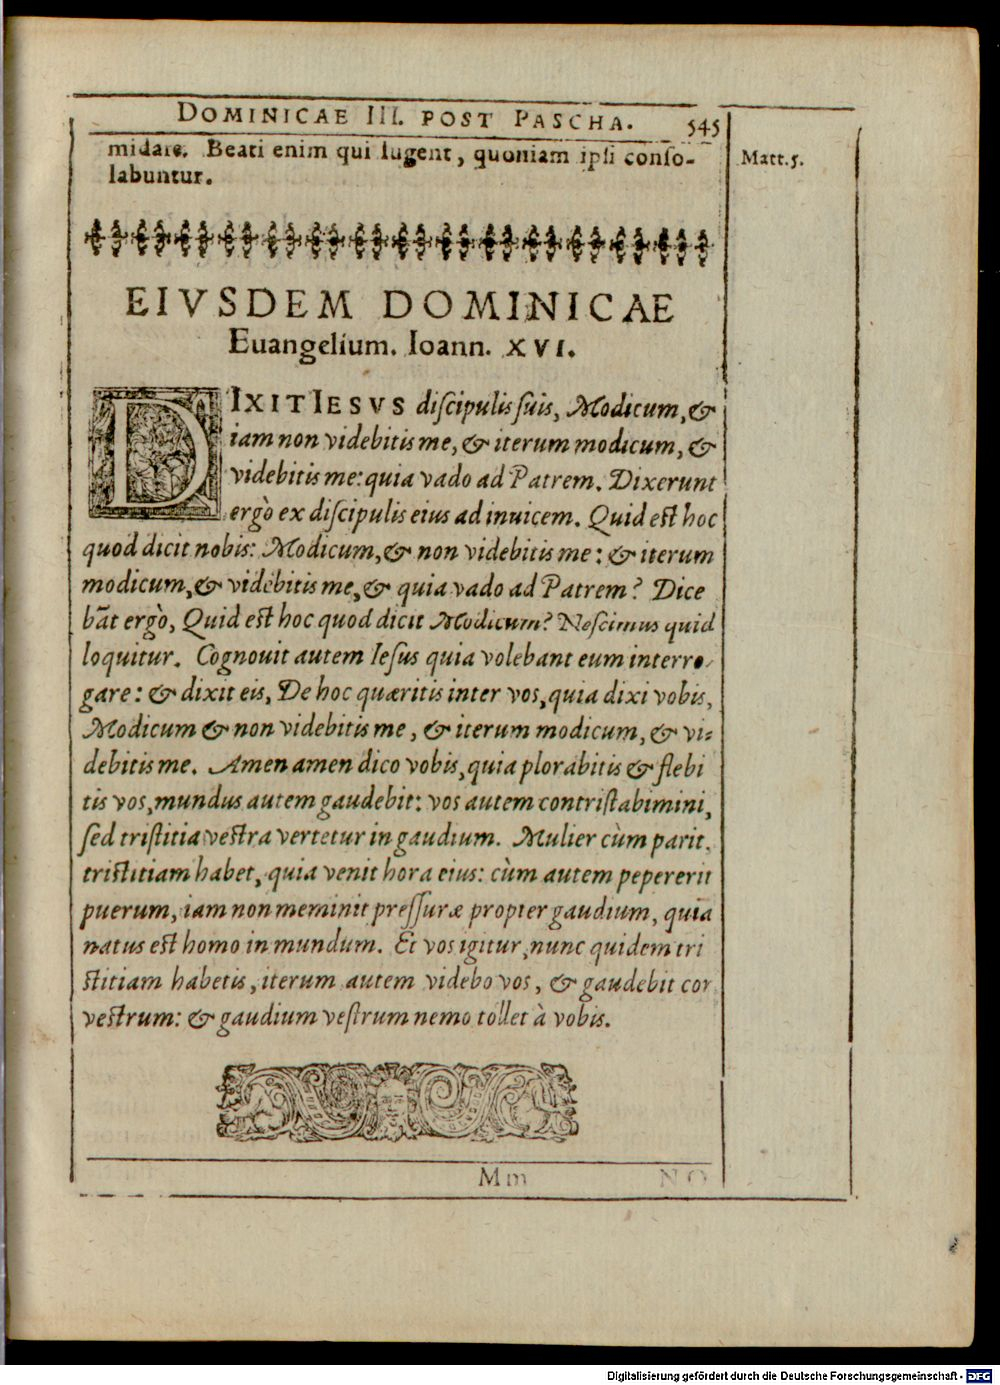 DOMINICAE III. POST PASCHA. 545
midare. Beati enim qui lugent, quoniam ipſi conſo-
labuntur.
Matt. 5.
EIVSDEM DOMINICAE
Euangelium. Ioann. XVI.
DIXIT IESVS diſcipulis ſuis, Modicum, &
iam non videbitis me, & iterum modicum, &
videbitis me: quia vado ad Patrem. Dixerunt
ergò ex diſcipulis eius ad inuicem. Quid eſt hoc
quod dicit nobis: Modicum, & non videbitis me: & iterum
modicum, & videbitis me, & quia vado ad Patrem? Dice
bāt ergò, Quid eſt hoc quod dicit Modicum? Neſcimus quid
loquitur. Cognouit autem Ieſus quia volebant eum interro-
gare: & dixit eis, De hoc quæritis inter vos, quia dixi vobis,
Modicum & non videbitis me, & iterum modicum, & vi-
debitis me. Amen amen dico vobis, quia plorabitis & flebi
tis vos, mundus autem gaudebit: vos autem contriſtabimini,
ſed triſtitia veſtra vertetur in gaudium. Mulier cùm parit,
triſtitiam habet, quia venit hora eius: cùm autem pepererit
puerum, iam non meminit preſſuræ propter gaudium, quia
natus eſt homo in mundum. Et vos igitur, nunc quidem tri
ſtitiam habetis, iterum autem videbo vos, & gaudebit cor
veſtrum: & gaudium veſtrum nemo tollet à vobis.
Mm NO
Digitalisierung gefördert durch die Deutsche Forschungsgemeinschaft - DFG